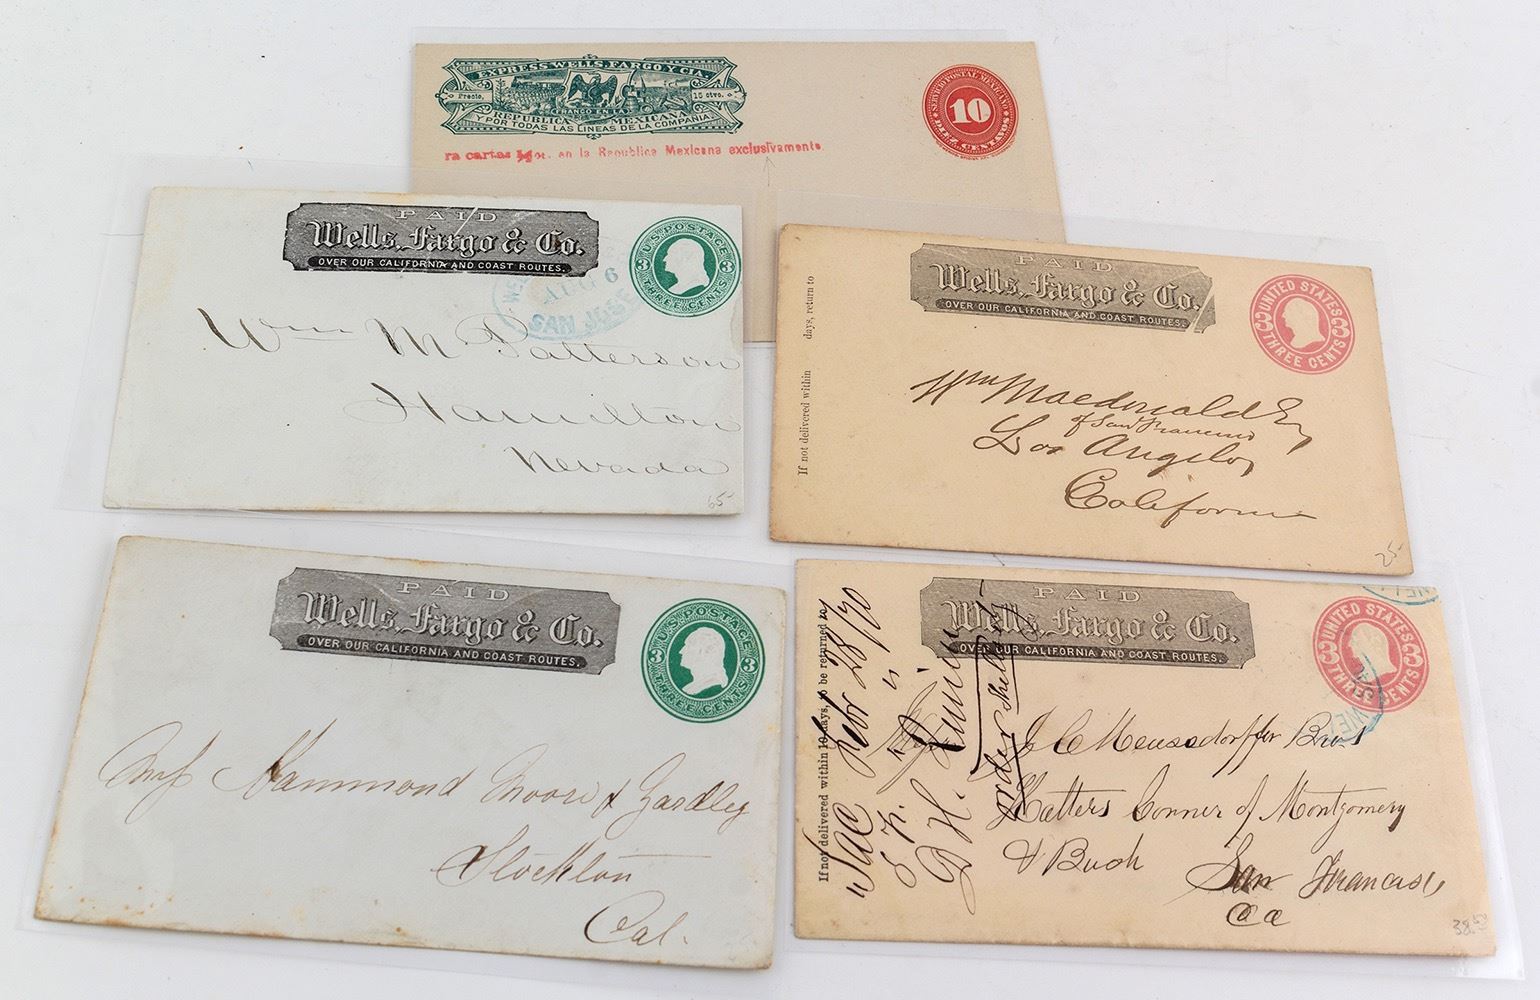 EXPRESS WELLS, FARGO Y CIA.
Precio, 15 ctvo.
FRANCO EN LA
REPUBLICA MEXICANA
Y POR TODAS LAS LINEAS DE LA COMPAÑIA.
SERVICIO POSTAL MEXICANO
10
DIEZ CENTAVOS
ra cartas en la Republica Mexicana exclusivamente
PAID
Wells, Fargo & Co.
OVER OUR CALIFORNIA AND COAST ROUTES.
U.S. POSTAGE
3 3
THREE CENTS
AUG 6
SAN JOSE
Wm M Patterson
Hamilton
Nevada
65-
PAID
Wells, Fargo & Co.
OVER OUR CALIFORNIA AND COAST ROUTES.
UNITED STATES
3 3
THREE CENTS
If not delivered within days, return to
Wm Macdonald Esq
of San Francisco
Los Angelos
California
25-
PAID
Wells, Fargo & Co.
OVER OUR CALIFORNIA AND COAST ROUTES.
U.S. POSTAGE
3 3
THREE CENTS
Hammond Moore & Yardley
Stockton
Cal.
PAID
Wells, Fargo & Co.
OVER OUR CALIFORNIA AND COAST ROUTES.
UNITED STATES
3 3
THREE CENTS
WELL
WE
If not delivered within 10 days, to be returned to
Sac Febr 28/70
order
J C Meussdorffer Bros
Hatters Conner of Montgomery
& Bush
San Francisco
Ca
38.50